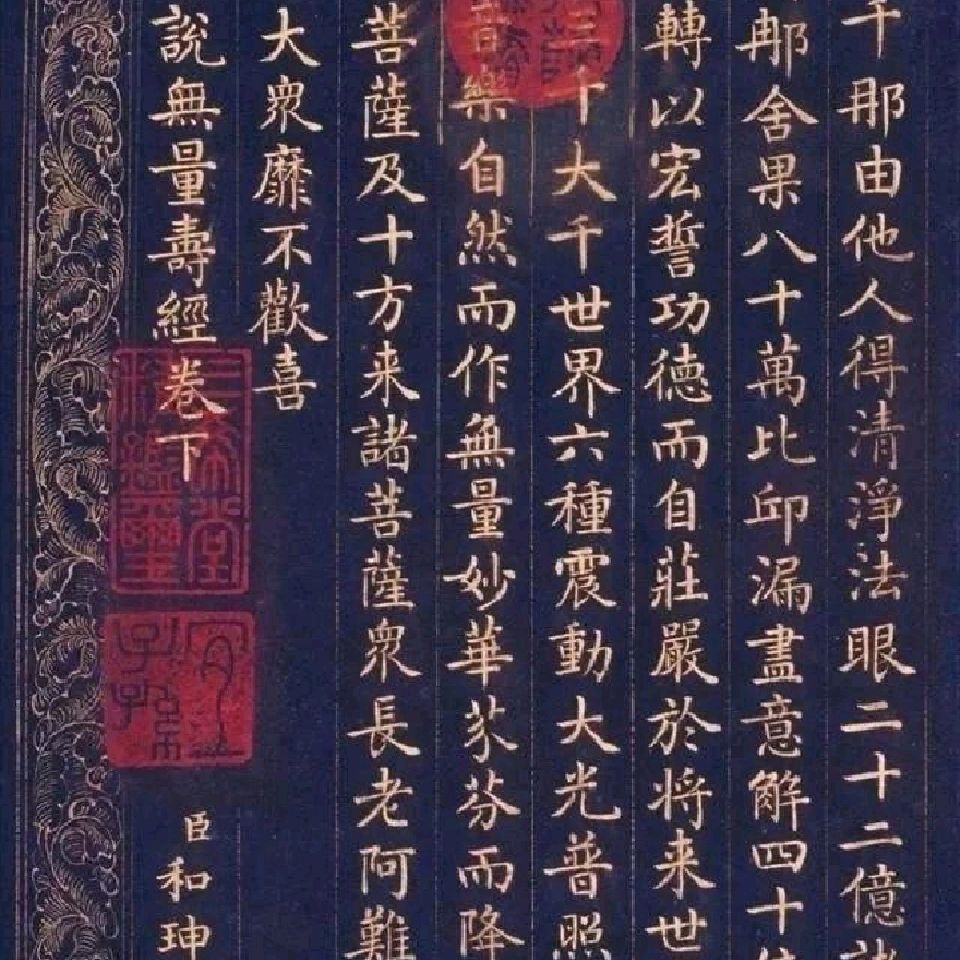 千那由他人得清淨法眼二十二億諸
那舍果八十萬比邱漏盡意解四十億
轉以宏誓功德而自莊嚴於將来世
三千大千世界六種震動大光普照
音樂自然而作無量妙華芬芬而降
菩薩及十方来諸菩薩衆長老阿難
大衆靡不歡喜
說無量壽經卷下
三希堂精鑑璽
宜子孫
臣和珅